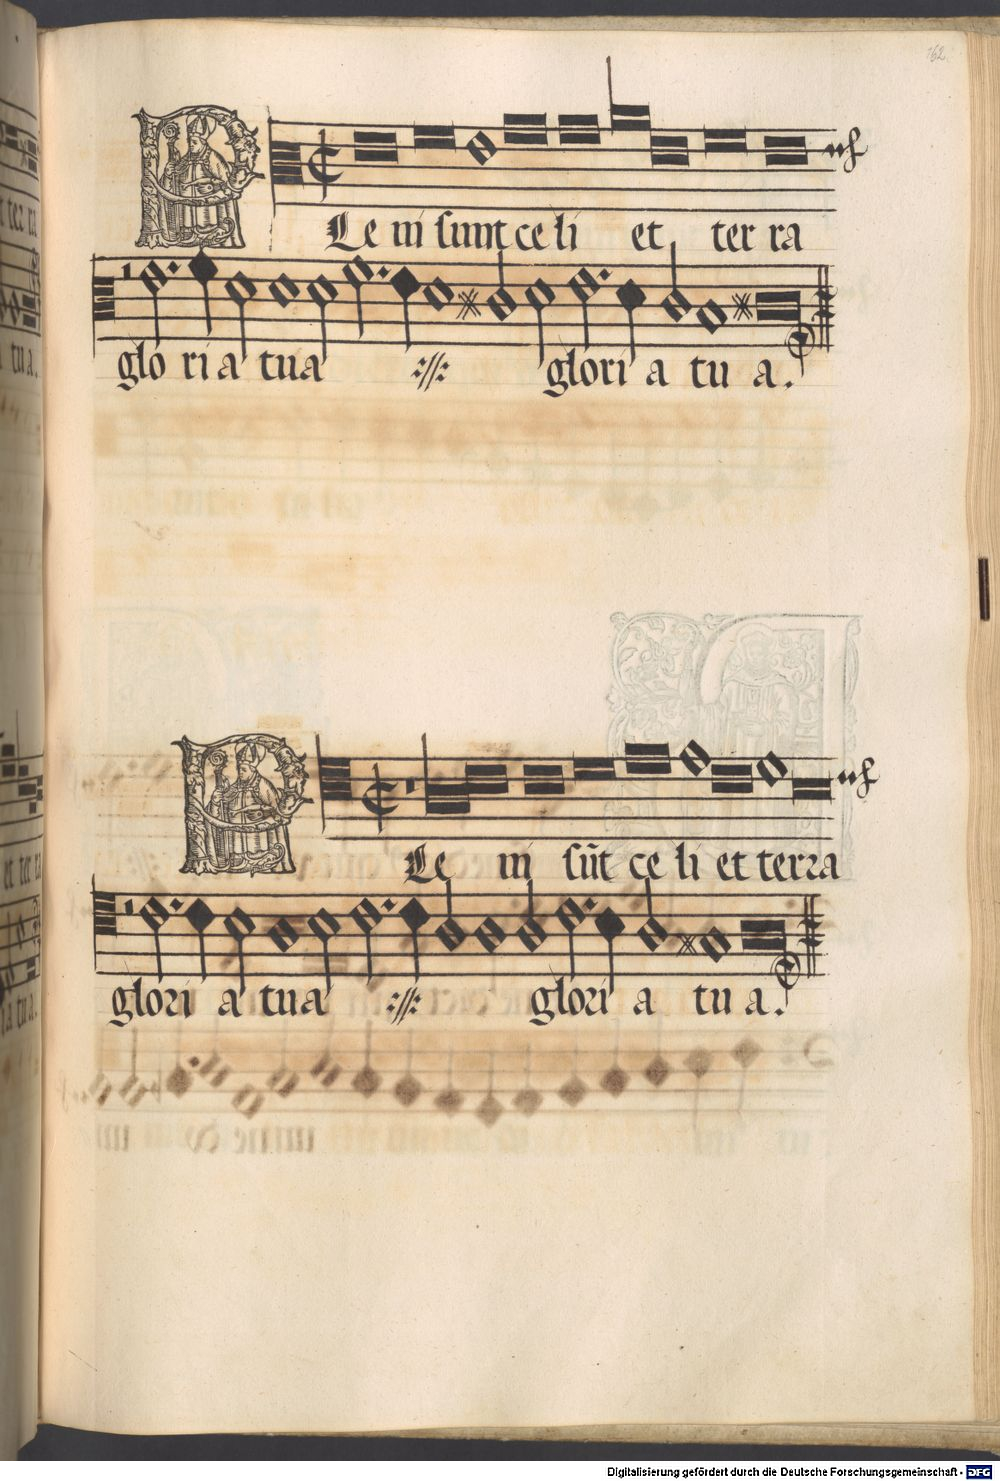 162
PLe ni sunt ce li et ter ra
glo ri a tua ://: glori a tu a.
PLe ni sūt ce li et terra
glori a tua ://: glori a tu a.
Digitalisierung gefördert durch die Deutsche Forschungsgemeinschaft - DFG